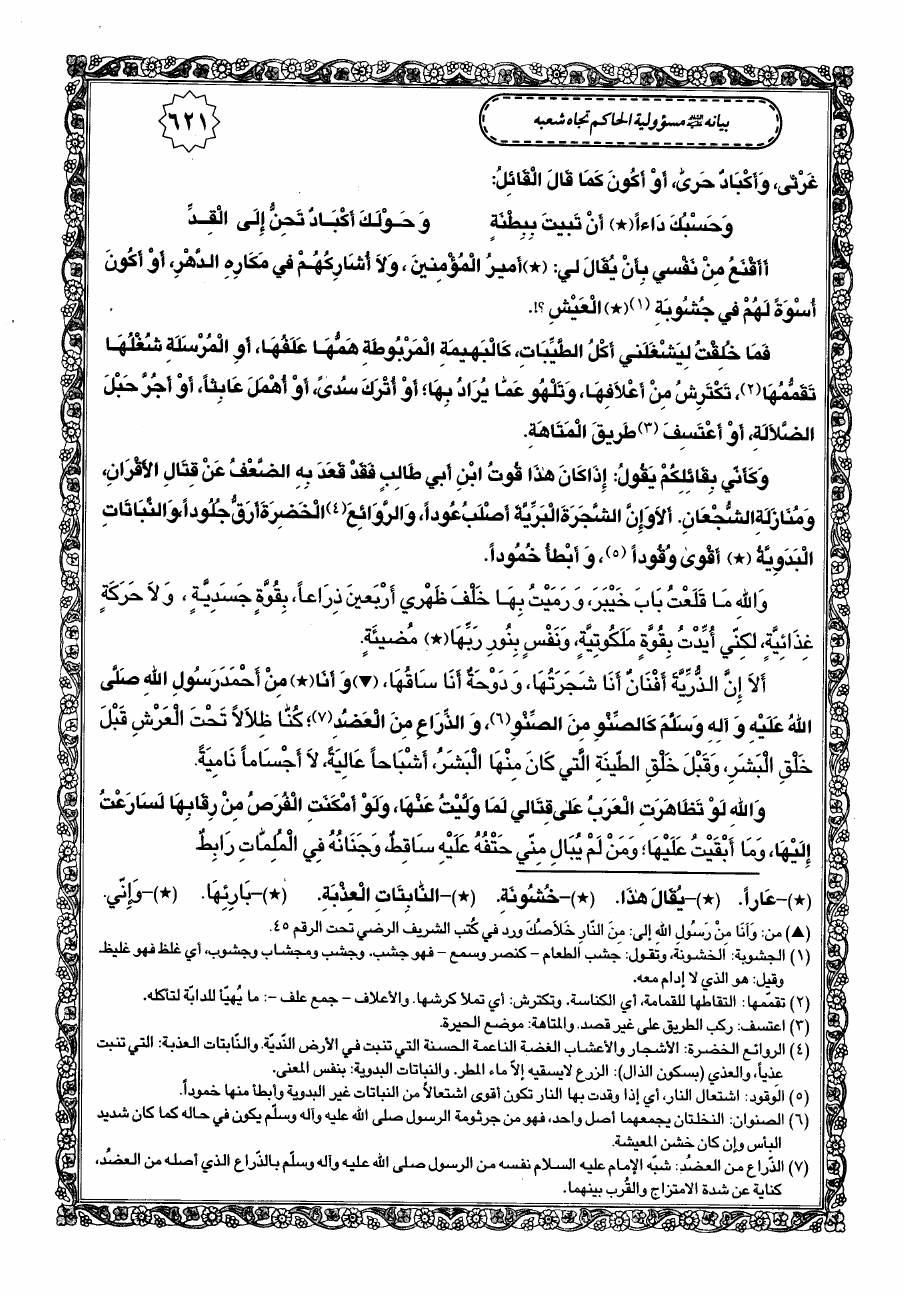 بيانه ﷺ مسؤولية الحاكم تجاه شعبه
٦٢١
غَرْثى، وَأَكْبَادٌ حَرىٰ، أَوْ أَكُونَ كَمَا قَالَ الْقَائِلُ:
وَحَسْبُكَ دَاءاً(★) أَنْ تَبيتَ بِبِطْنَةٍ وَحَوْلَكَ أَكْبَادٌ تَحِنُّ إِلَى الْقِدِّ
أَأَقْنَعُ مِنْ نَفْسي بِأَنْ يُقَالَ لي: (★)أَميرُ الْمُؤْمِنينَ، وَلاَ أُشَارِكُهُمْ في مَكَارِهِ الدَّهْرِ، أَوْ أَكُونَ
أُسْوَةً لَهُمْ في جُشُوبَةِ (١)(★)الْعَيْشِ ؟!.
فَمَا خُلِقْتُ لِيَشْغَلَني أَكْلُ الطَّيِّبَاتِ، كَالْبَهيمَةِ الْمَرْبُوطَةِ هَمُّهَا عَلَفُهَا، أَوِ الْمُرْسَلَةِ شُغْلُهَا
تَقَمُّمُهَا(٢)، تَكْتَرِشُ مِنْ أَعْلاَفِهَا، وَتَلْهُو عَمَّا يُرَادُ بِهَا؛ أَوْ أُتْرَكَ سُدىً، أَوْ أُهْمَلَ عَابِثاً، أَوْ أَجُرَّ حَبْلَ
الضَّلاَلَةِ، أَوْ أَعْتَسِفَ (٣)طَريقَ الْمَتَاهَةِ.
وَكَأَنّي بِقَائِلِكُمْ يَقُولُ: إِذَا كَانَ هٰذَا قُوتُ ابْنِ أَبي طَالِبٍ فَقَدْ قَعَدَ بِهِ الضَّعْفُ عَنْ قِتَالِ الأَقْرَانِ،
وَمُنَازَلَةِ الشُّجْعَانِ. أَلاَ وَإِنَّ الشَّجَرَةَ الْبَرِّيَّةَ أَصْلَبُ عُوداً، وَالرَّوَائِعَ(٤)الْخَضِرَةَ أَرَقُّ جُلُوداً، وَالنَّبَاتَاتِ
الْبَدَوِيَّةُ (★) أَقْوىٰ وَقُوداً (٥)، وَ أَبْطَأُ خُمُوداً.
وَاللهِ مَا قَلَعْتُ بَابَ خَيْبَرَ، وَرَمَيْتُ بِهَا خَلْفَ ظَهْري أَرْبَعينَ ذِرَاعاً، بِقُوَّةٍ جَسَدِيَّةٍ، وَلاَ حَرَكَةٍ
غِذَائِيَّةٍ، لٰكِنّي أُيِّدْتُ بِقُوَّةٍ مَلَكُوتِيَّةٍ، وَنَفْسٍ بِنُورِ رَبِّهَا(★) مُضيئَةٍ.
أَلاَ إِنَّ الذُّرِّيَّةَ أَفْنَانٌ أَنَا شَجَرَتُهَا، وَدَوْحَةٌ أَنَا سَاقُهَا، (▼)وَ أَنَا(★) مِنْ أَحْمَدَ رَسُولِ اللهِ صَلَّى
اللهُ عَلَيْهِ وَ آلِهِ وَسَلَّمَ كَالصِّنْوِ مِنَ الصِّنْوِ(٦)، وَ الذِّرَاعِ مِنَ الْعَضُدِ(٧)؛ كُنَّا ظِلاَلاً تَحْتَ الْعَرْشِ قَبْلَ
خَلْقِ الْبَشَرِ، وَقَبْلَ خَلْقِ الطّينَةِ الَّتي كَانَ مِنْهَا الْبَشَرُ، أَشْبَاحاً عَالِيَةً، لاَ أَجْسَاماً نَامِيَةً.
وَاللهِ لَوْ تَظَاهَرَتِ الْعَرَبُ عَلىٰ قِتَالي لَمَا وَلَّيْتُ عَنْهَا، وَلَوْ أَمْكَنَتِ الْفُرَصُ مِنْ رِقَابِهَا لَسَارَعْتُ
إِلَيْهَا، وَمَا أَبْقَيْتُ عَلَيْهَا؛ وَمَنْ لَمْ يُبَالِ مِنّي حَتْفُهُ عَلَيْهِ سَاقِطٌ، وَجَنَانُهُ فِي الْمُلِمَّاتِ رَابِطٌ
(★)–عَاراً. (★)–يُقَالَ هٰذَا. (★)–خُشُونَةِ. (★)–النَّابِتَاتِ الْعِذْيَةِ. (★)–بَارِئِهَا. (★)–وَإِنّي.
(▲) من: وَأَنَا مِنْ رَسُولِ اللهِ إلى: مِنَ النَّارِ خَلاَصُكَ ورد في كُتب الشريف الرضي تحت الرقم ٤٥.
(١) الجشوبة: الخشونة، وتقول: جشب الطعام – كنصر وسمع – فهو جشب، وجشب ومجشاب وجشوب، أي غلظ فهو غليظ.
وقيل: هو الذي لا إدام معه.
(٢) تقمّمها: التقاطها للقمامة، أي الكناسة. وتكترش: أي تملأ كرشها. والأعلاف – جمع علف –: ما يُهيّأ للدابّة لتأكله.
(٣) اعتسف: ركب الطريق على غير قصد. والمتاهة: موضع الحيرة.
(٤) الروائع الخضرة: الأشجار والأعشاب الغضة الناعمة الحسنة التي تنبت في الأرض النّديّة. والنّابتات العذبة: التي تنبت
عذياً، والعذي (بسكون الذال): الزرع لايسقيه إلاّ ماء المطر. والنباتات البدوية: بنفس المعنى.
(٥) الوقود: اشتعال النار، أي إذا وقدت بها النار تكون أقوى اشتعالاً من النباتات غير البدوية وأبطأ منها خموداً.
(٦) الصنوان: النخلتان يجمعهما أصل واحد، فهو من جرثومة الرسول صلى الله عليه وآله وسلّم يكون في حاله كما كان شديد
البأس وإن كان خشن المعيشة.
(٧) الذّراع من العضُد: شبّه الإمام عليه السلام نفسه من الرسول صلى الله عليه وآله وسلّم بالذّراع الذي أصله من العضُد،
كناية عن شدة الامتزاج والقُرب بينهما.